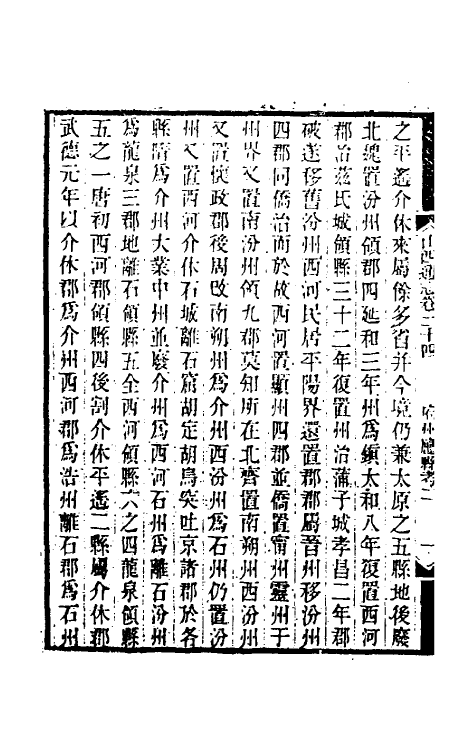 之平遙介休來屬餘多省并今境仍兼太原之五縣地後魏
北魏置汾州領郡四延和三年州爲鎮太和八年復置西河
郡治茲氏城領縣三十二年復置州治蒲子城孝昌二年郡
破遂移舊汾州西河民居平陽界還置郡郡屬晉州移汾州
四郡同僑治而於故西河置顯州四郡並僑置甯州靈州于
州界又置南汾州領九郡莫知所在北齊置南朔州西汾州
又置懷政郡後周改南朔州爲介州西汾州爲石州仍置汾
州又置西河介休石城離石窟胡定胡烏突吐京諸郡於各
縣隋爲介州大業中州並廢介州爲西河石州爲離石汾州
爲龍泉三郡地離石領縣五全西河領縣六之四龍泉領縣
五之一唐初西河郡領縣四後割介休平遙二縣屬介休郡
武德元年以介休郡爲介州西河郡爲浩州離石郡爲石州
山西通志卷二十四
府州廳縣考二
一